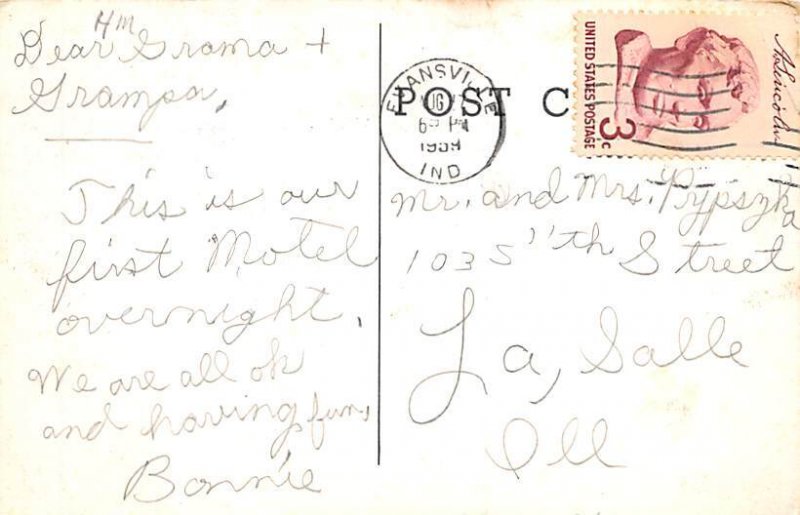 Hm
Dear Grama +
Grampa,
This is our
first Motel
overnight.
We are all ok
and having fun,
Bonnie
EVANSVILLE
PM
1959
IND
POST C
UNITED STATES POSTAGE
3c
A. Lincoln
Mr. and Mrs. Pypszka
1035 11th Street
La, Salle
Ill